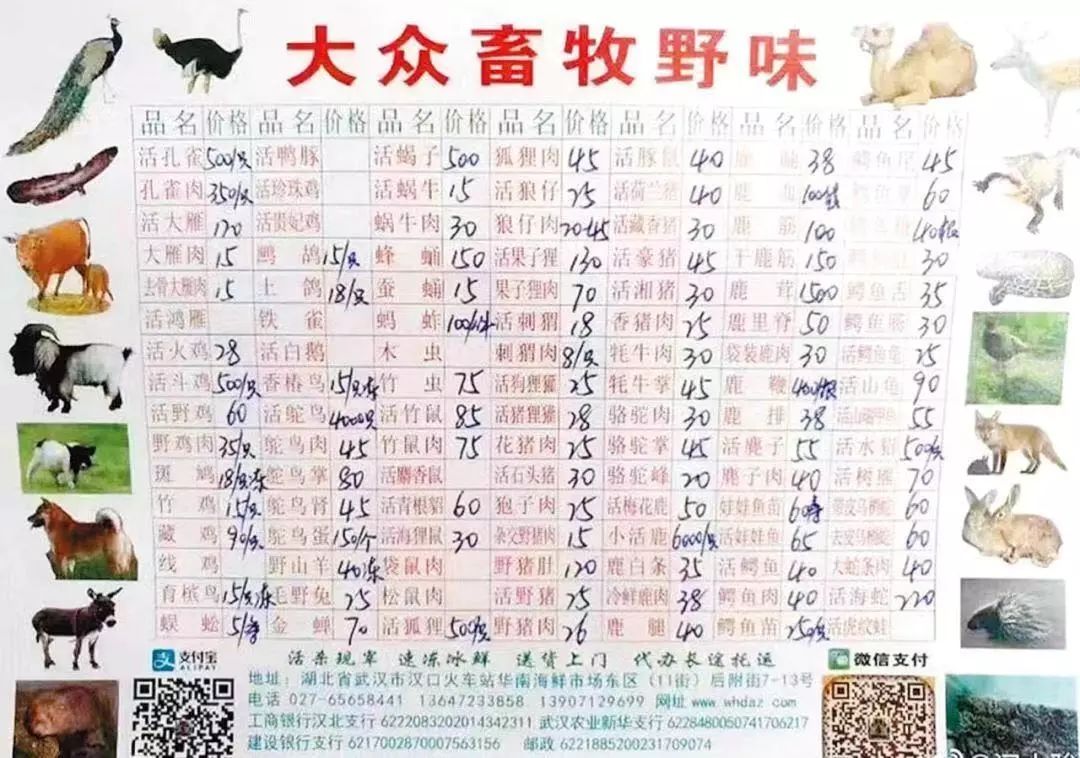 大众畜牧野味
品名 价格 品名 价格 品名 价格 品名 价格 品名 价格 品名 价格 品名 价格
活孔雀 500/只 活鸭豚 活蝎子 500 狐狸肉 45 活豚鼠 40 鹿 38 鳄鱼尾 45
孔雀肉 350/只 活珍珠鸡 活蜗牛 15 活狼仔 25 活荷兰猪 40 鹿 60
活大雁 120 活贵妃鸡 蜗牛肉 30 狼仔肉 20-45 活藏香猪 30 鹿筋 100
大雁肉 15 鹧鸪 15/只 蜂蛹 150 活果子狸 130 活豪猪 45 干鹿筋 150 30
去骨大雁肉 15 土鸽 18/只 蚕蛹 15 果子狸肉 70 活湘猪 30 鹿茸 1500 鳄鱼舌 35
活鸿雁 铁雀 蚂蚱 活刺猬 18 香猪肉 25 鹿里脊 50 鳄鱼肠 30
活火鸡 28 活白鹅 木虫 刺猬肉 8/只 牦牛肉 30 袋装鹿肉 30 活鳄鱼龟 25
活斗鸡 500/只 香椿鸟 15/只冻 竹虫 75 活狗狸獾 25 牦牛掌 45 鹿鞭 活山龟 90
活野鸡 60 活鸵鸟 4000只 活竹鼠 85 活猪狸獾 28 骆驼肉 30 鹿排 38 55
野鸡肉 35/只 鸵鸟肉 45 竹鼠肉 75 花猪肉 25 骆驼掌 45 活麂子 55 活水 500/只
斑鸠 18/只冻 鸵鸟掌 80 活麝香鼠 活石头猪 30 骆驼峰 20 麂子肉 40 活树 70
竹鸡 15/只 鸵鸟肾 45 活青根貂 60 狍子肉 25 活梅花鹿 50 娃娃鱼苗 60
藏鸡 90/只 鸵鸟蛋 150/个 活海狸鼠 30 杂交野猪肉 15 小活鹿 6000/只 活娃娃鱼 65 60
线鸡 野山羊 40冻 袋鼠肉 野猪肚 120 鹿白条 35 活鳄鱼 40 大蛇条肉 40
育槟鸟 15/只冻 毛野兔 25 松鼠肉 活野猪 25 冷鲜鹿肉 38 鳄鱼肉 40 活海蛇 220
蜈蚣 金蝉 70 活狐狸 500/只 野猪肉 26 鹿腿 40 鳄鱼苗 活虎纹蛙
支付宝
ALIPAY
活杀现宰 速冻冰鲜 送货上门 代办长途托运
微信支付
地址：湖北省武汉市汉口火车站华南海鲜市场东区（11街）后附街7-13号
电话 027-65658441 13647233858 13907129699 网址 www.whdazm.com
工商银行汉北支行 6222083202014342311 武汉农业新华支行 6228480050741706217
建设银行支行 6217002870007563156 邮政 6221885200231709074